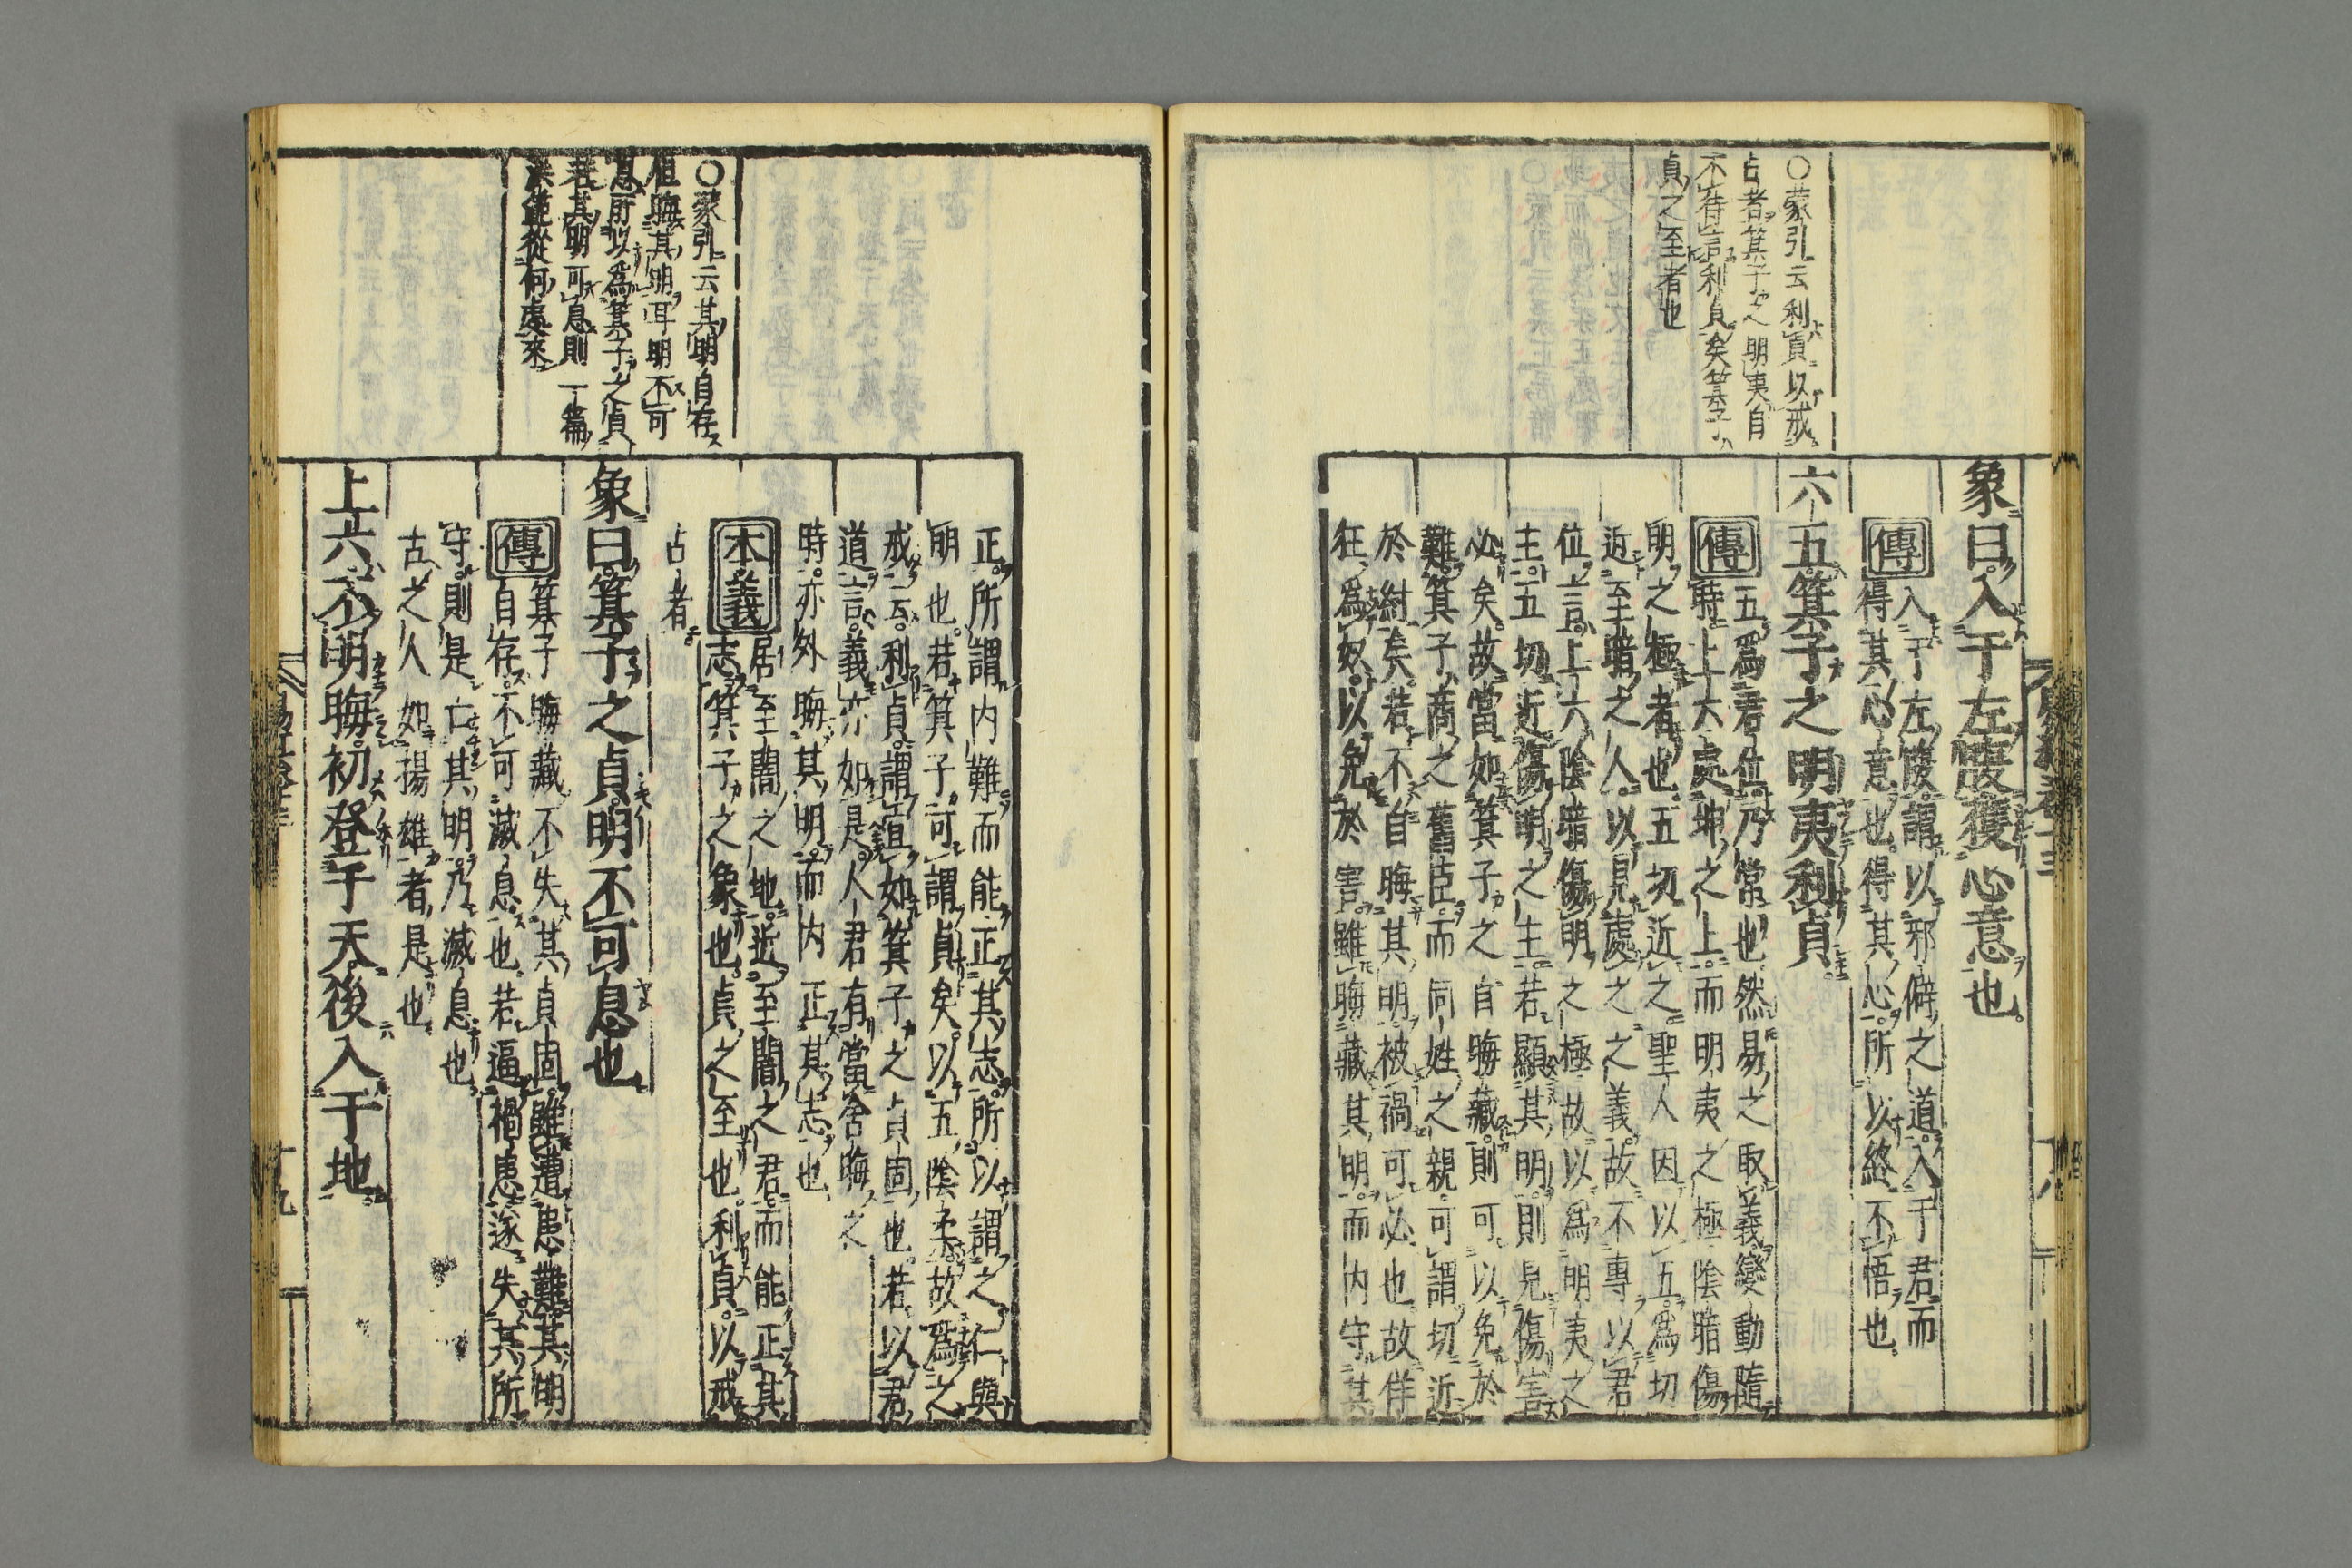 ○蒙引云利貞以戒
占者箕子之明夷自
不待言利貞矣箕子
貞之至者也
象曰入于左腹獲心意也
傳
入于左腹謂以邪僻之道入于君而
得其心意也得其心所以終不悟也
六五箕子之明夷利貞
傳
五爲君位乃常也然易之取義變動隨
時上六處坤之上而明夷之極陰暗傷
明之極者也五切近之聖人因以五爲切
近至暗之人以見處之之義故不專以君
位言上六陰暗傷明之極故以爲明夷之
主五切近傷明之主若顯其明則見傷害
必矣故當如箕子之自晦藏則可以免於
難箕子商之舊臣而同姓之親可謂切近
於紂矣若不自晦其明被禍可必也故佯
狂爲奴以免於害雖晦藏其明而内守其
十八
○蒙引云其明自存
但晦其明耳明不可
息所以爲箕子之貞
若其明可息則一篇
洪範從何處來
正所謂内難而能正其志所以謂之仁與
明也若箕子可謂貞矣以五陰柔故爲之
戒云利貞謂宜如箕子之貞固也若以君
道言義亦如是人君有當舍晦之
時亦外晦其明而内正其志也
本義
居至闇之地近至闇之君而能正其
志箕子之象也貞之至也利貞以戒
占者
象曰箕子之貞明不可息也
傳
箕子晦藏不失其貞固雖遭患難其明
自存不可滅息也若逼禍患遂失其所
守則是亡其明乃滅息也
古之人如揚雄者是也
上六不明晦初登于天後入于地
十九